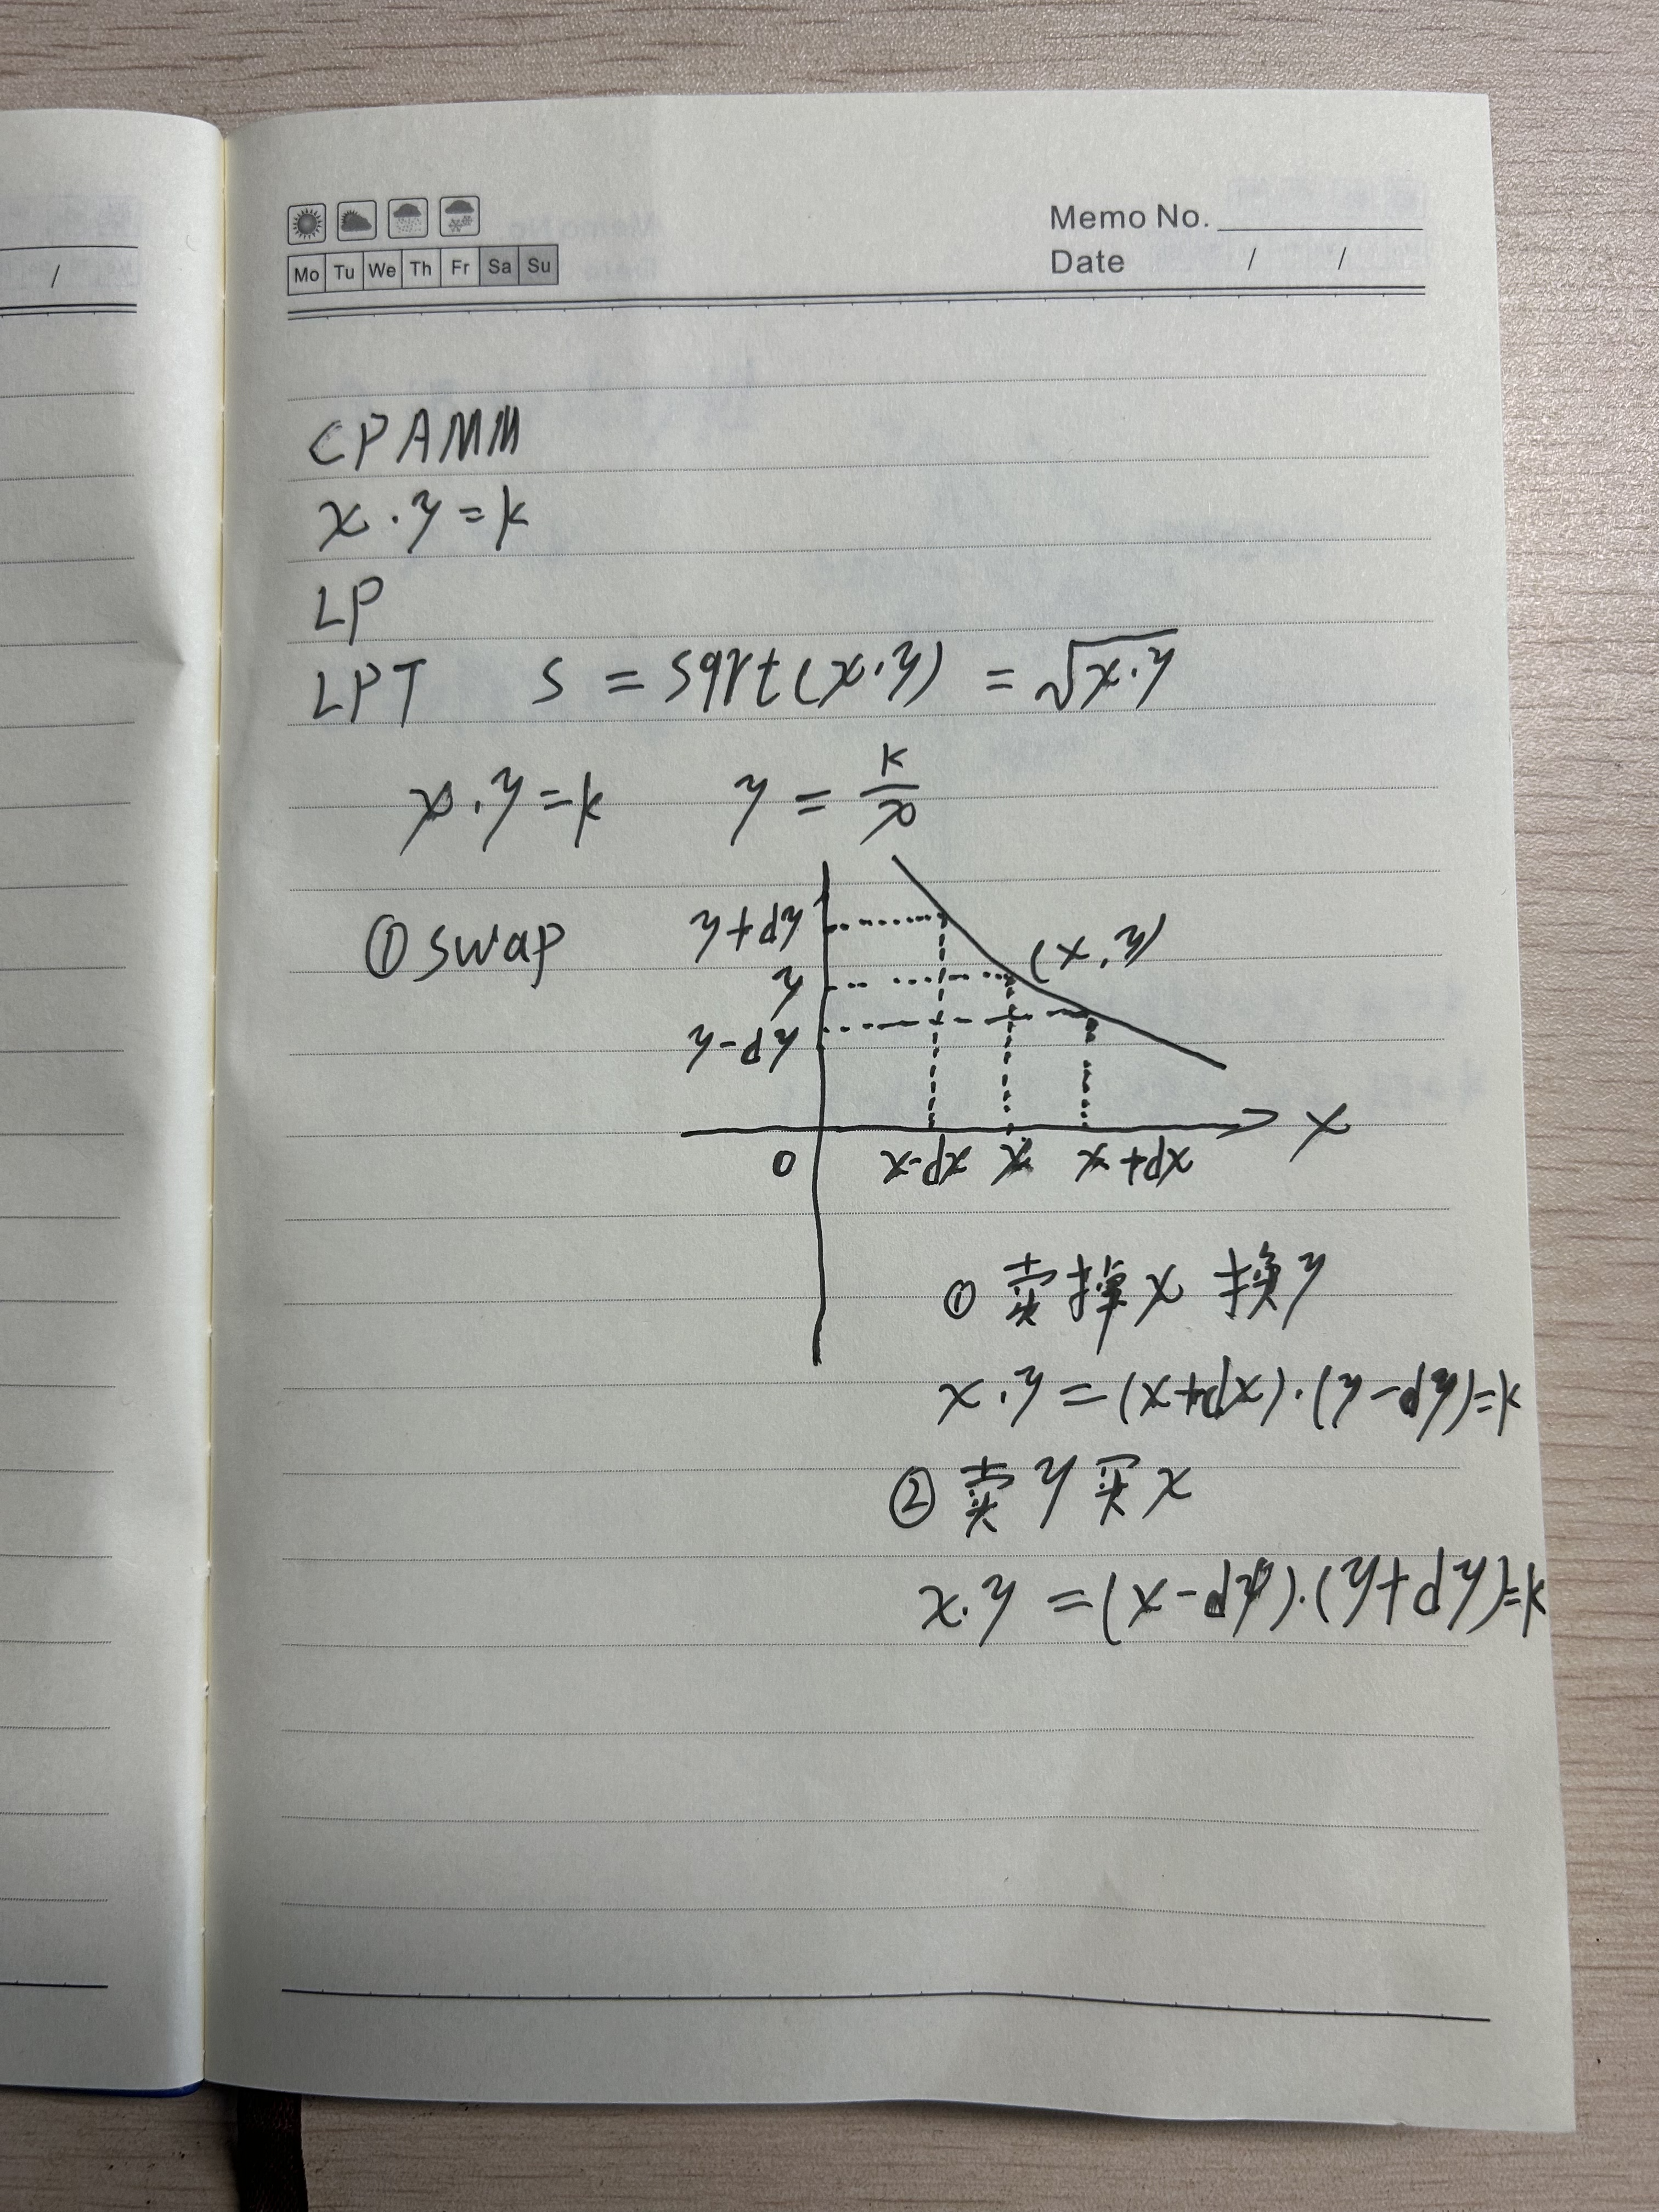 Memo No.
Mo Tu We Th Fr Sa Su
Date / /
/
CPAMM
x·y=k
LP
LPT s = sqrt(x·y) = √x·y
x·y=k y = k/x
① swap
y+dy
(x,y)
y
y-dy
x
0 x-dx x x+dx
① 卖掉x 换y
x·y=(x+dx)·(y-dy)=k
② 卖y买x
x·y=(x-dx)·(y+dy)=k